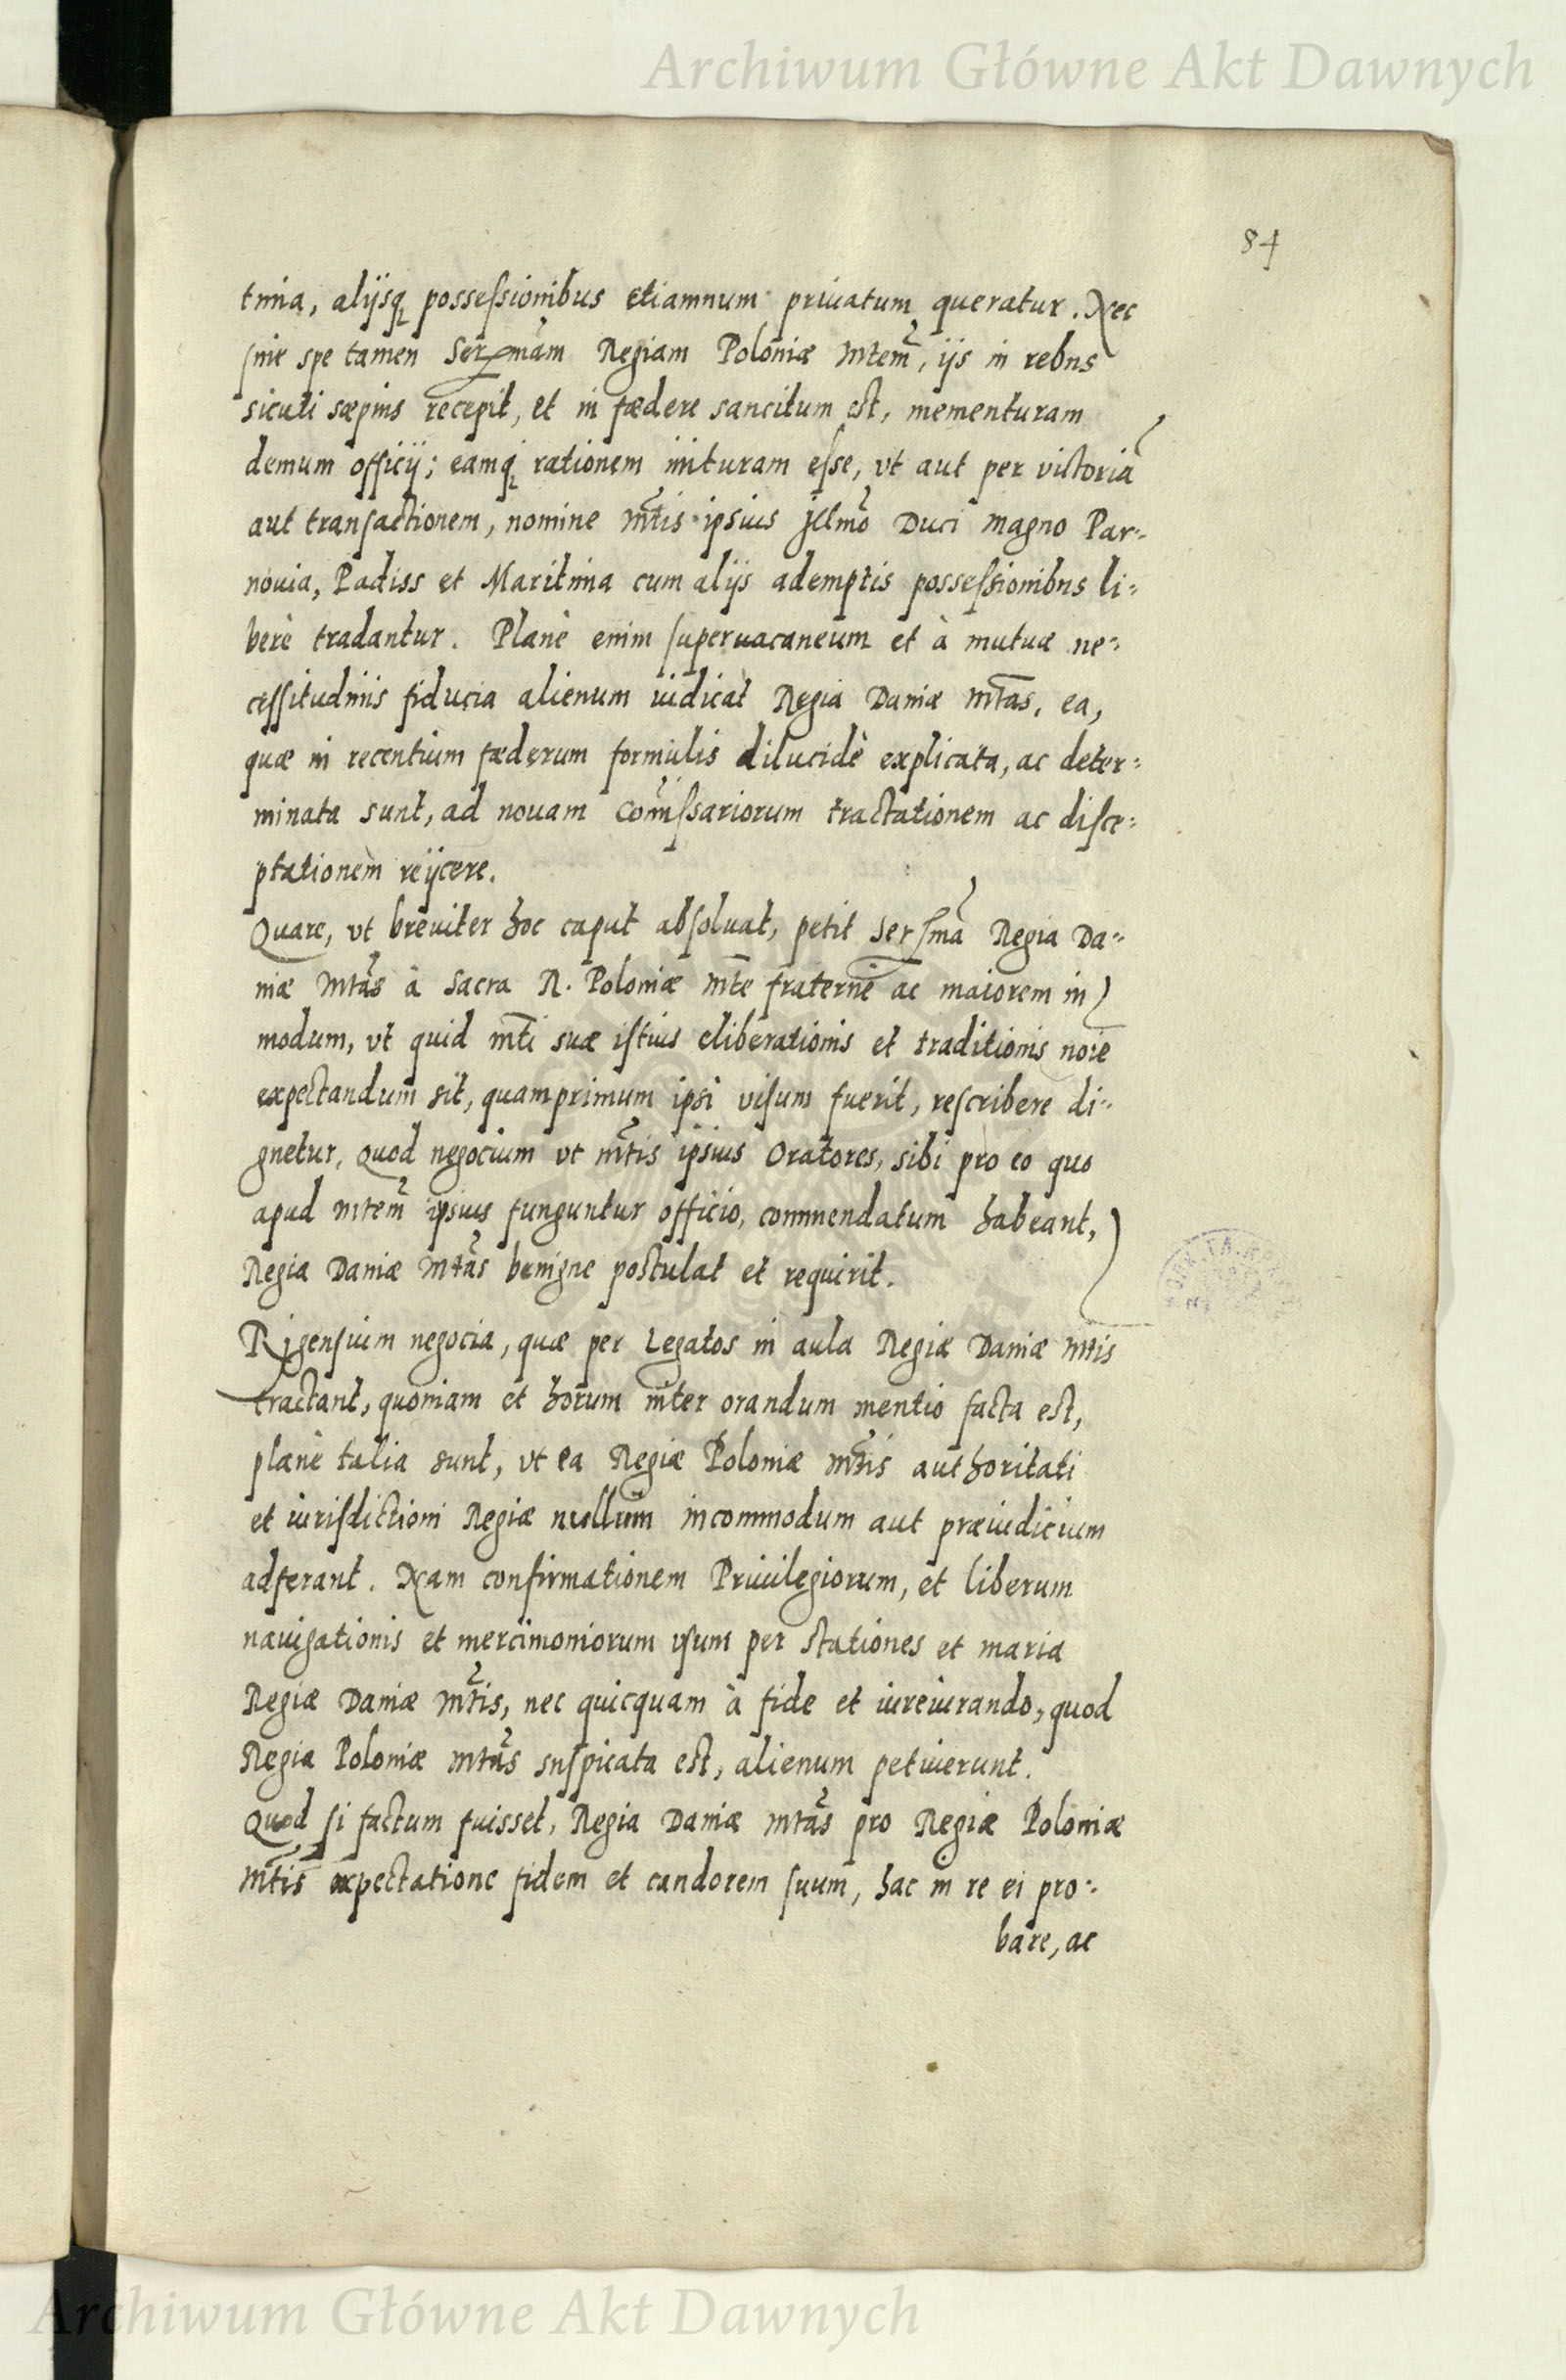 Archiwum Główne Akt Dawnych
84
tima, alijsq possessionibus etiamnum priuatum queratur. Nec
sine spe tamen Sermam Regiam Poloniæ Mtem, ijs in rebus
sicuti sæpius recepit, et in fædere sancitum est, mementuram
demum officij; eamq rationem inituram esse, vt aut per victoriā
aut transactionem, nomine Mtis ipsius Jllmo Duci magno Par-
nouia, Padiss et Maritima cum alijs ademptis possessionibus li-
berè tradantur. Planè enim superuacaneum et à mutuæ ne-
cessitudinis fiducia alienum iudicat Regia Daniæ Mtas, ea,
quæ in recentium fæderum formulis dilucidè explicata, ac deter-
minata sunt, ad nouam Comissariorum tractationem ac disce-
ptationem reijcere.
Quare, vt breuiter hoc caput absoluat, petit Serma Regia Da-
niæ Mtas à Sacra R. Poloniæ Mte fraternè ac maiorem in
modum, vt quid Mti suæ istius eliberationis et traditionis noīe
expectandum sit, quamprimum ipsi visum fuerit, rescribere di-
gnetur, Quod negocium vt Mtis ipsius Oratores, sibi pro eo quo
apud Mtem ipsius funguntur officio, commendatum habeant,
Regia Daniæ Mtas benigne postulat et requirit.
Rigensium negocia, quæ per Legatos in aula Regiæ Daniæ Mtis
tractant, quoniam et horum inter orandum mentio facta est,
planè talia sunt, vt ea Regiæ Poloniæ Mtis authoritati
et iurisdictioni Regiæ nullum incommodum aut præiudicium
adferant. Nam confirmationem Priuilegiorum, et liberum
nauigationis et mercimoniorum vsum per stationes et maria
Regiæ Daniæ Mtis, nec quicquam à fide et iureiurando, quod
Regia Poloniæ Mtas suspicata est, alienum petiuerunt.
Quod si factum fuisset, Regia Daniæ Mtas pro Regiæ Poloniæ
Mtis expectatione fidem et candorem suum, hac in re ei pro-
bare, ac
Archiwum Główne Akt Dawnych